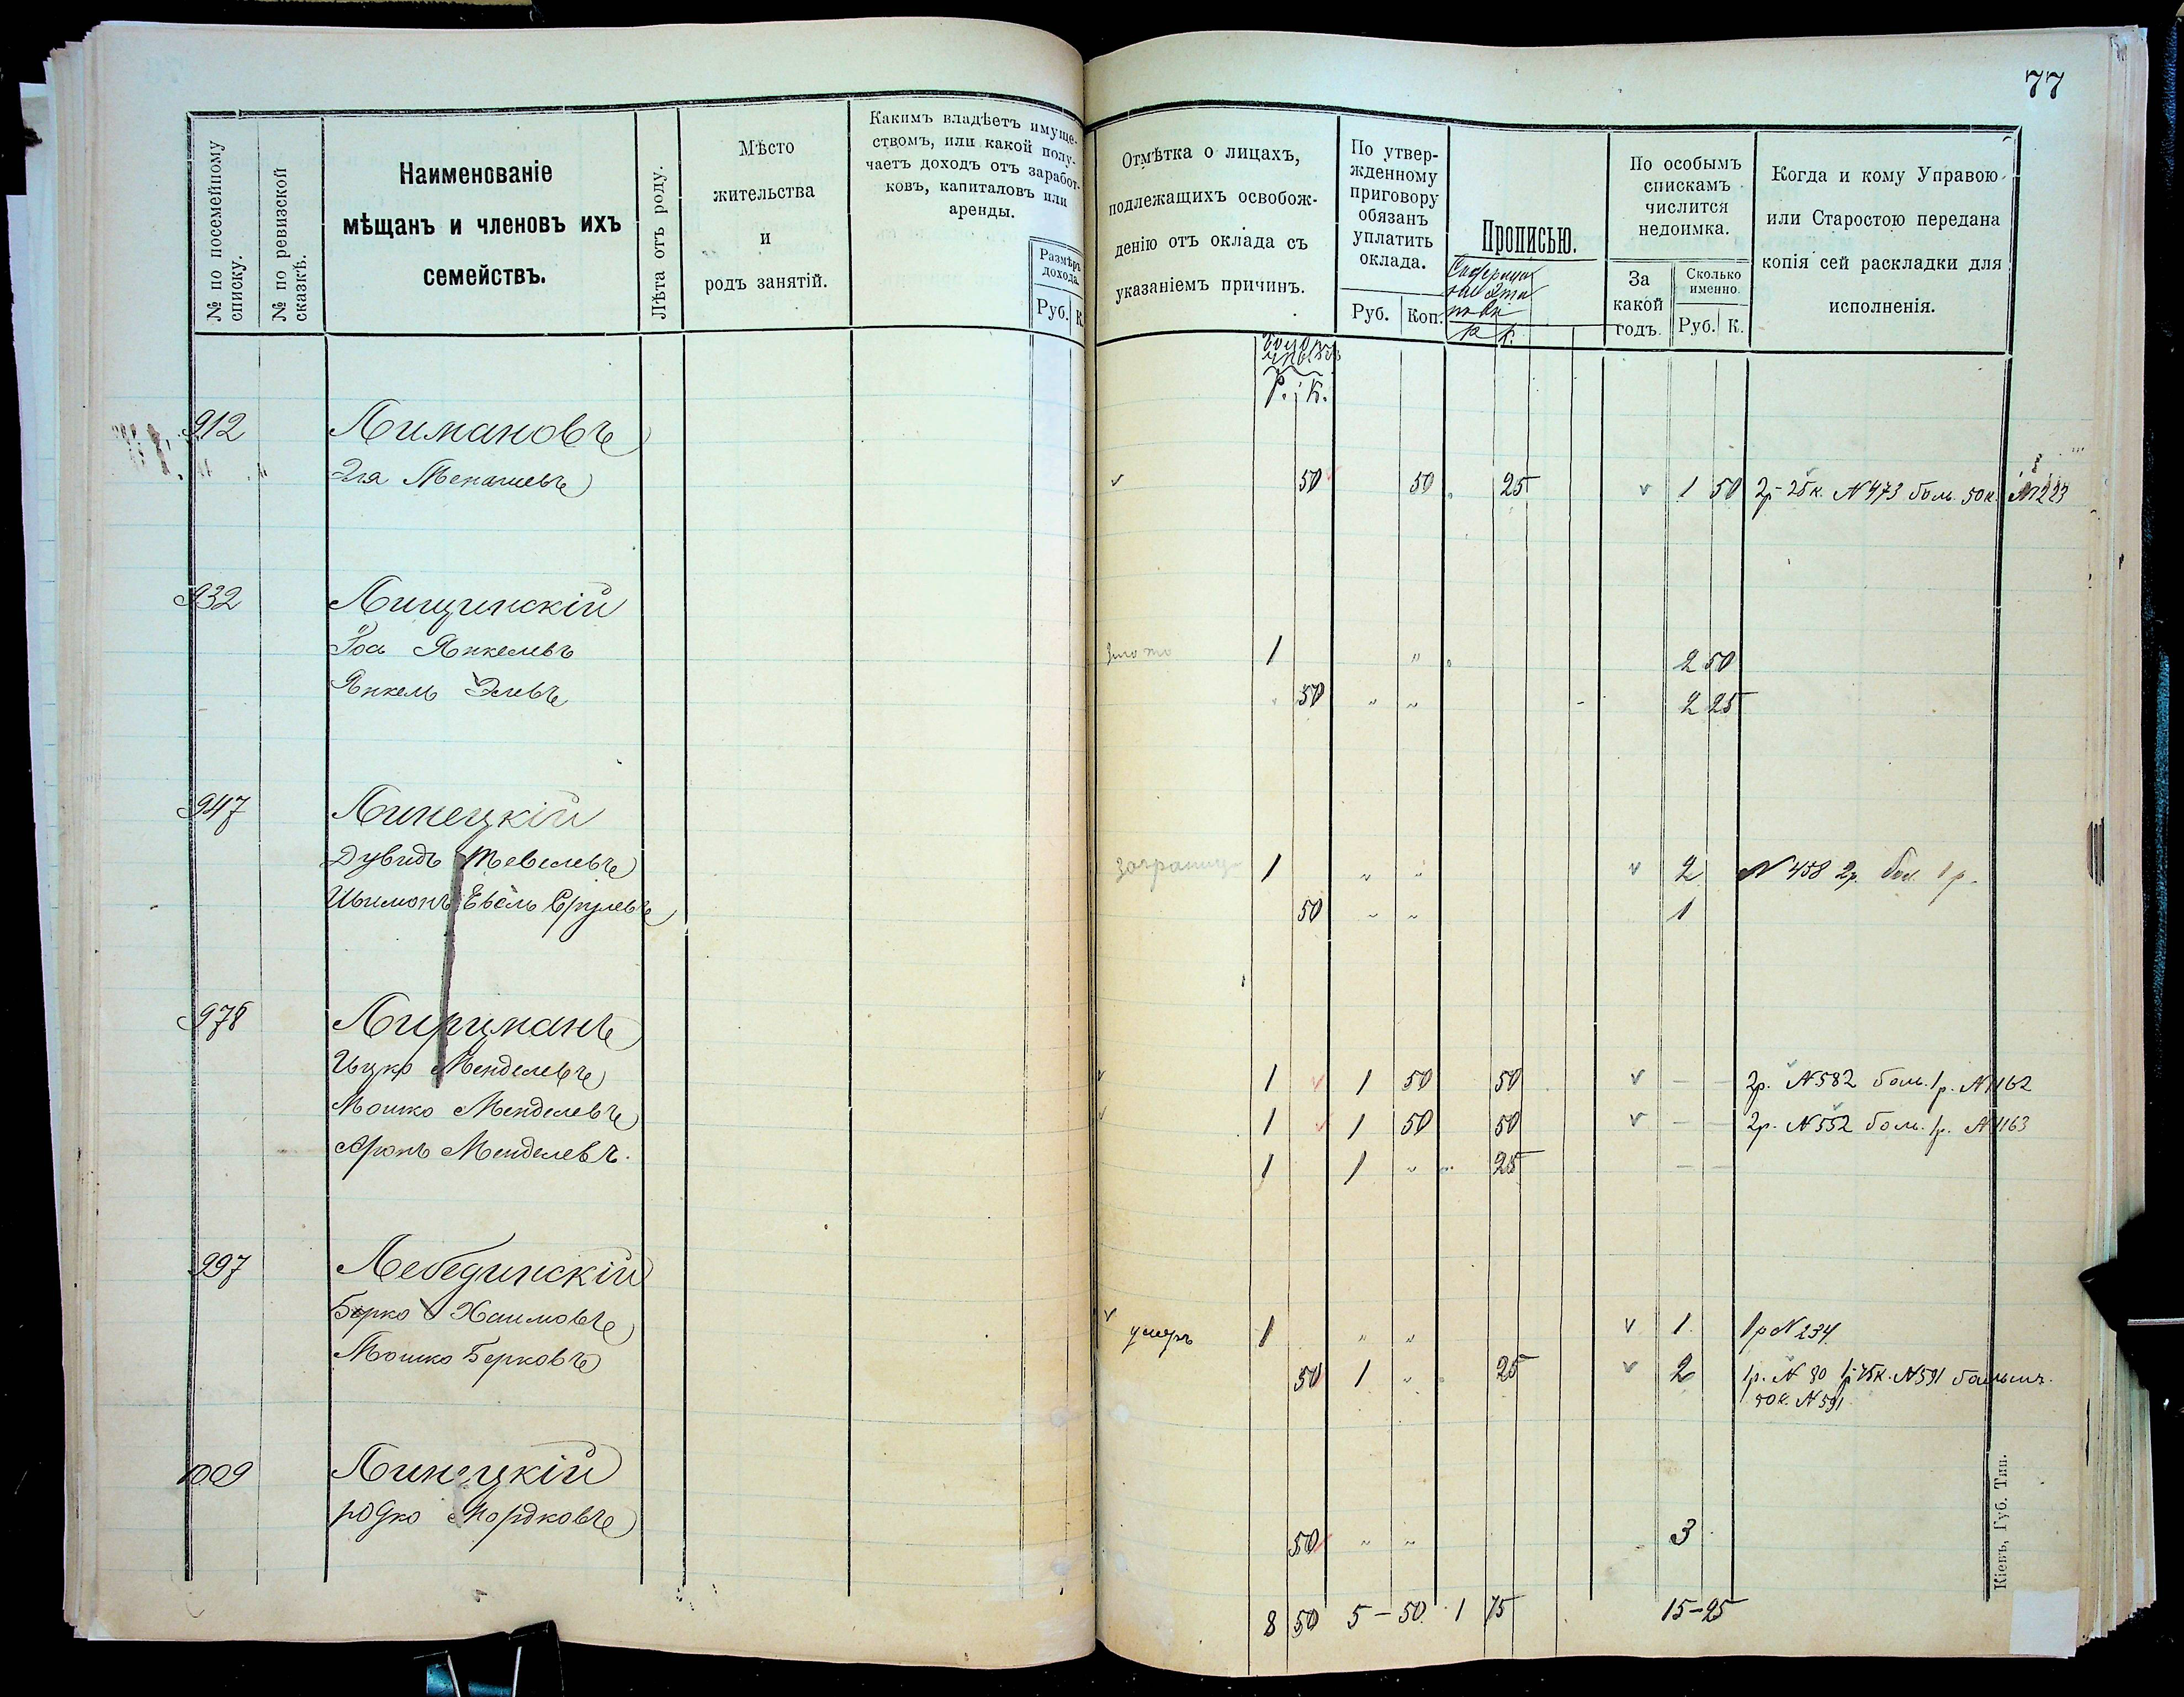 77
№ по посемейному списку.
№ по ревизской сказкѣ.
Наименованіе
мѣщанъ и членовъ ихъ
семействъ.
Лѣта отъ роду.
Мѣсто
жительства
и
родъ занятій.
Какимъ владѣетъ имуще-
ствомъ, или какой полу-
чаетъ доходъ отъ заработ-
ковъ, капиталовъ или
аренды.
Размѣръ
дохода.
Руб. К.
Отмѣтка о лицахъ,
подлежащихъ освобож-
денію отъ оклада съ
указаніемъ причинъ.
По утвер-
жденному
приговору
обязанъ
уплатить
оклада.
Руб. Коп.
Прописью.
По особымъ
спискамъ
числится
недоимка.
За
какой
годъ.
Сколько
именно.
Руб. К.
Когда и кому Управою
или Старостою передана
копія сей раскладки для
исполненія.
Р. К.
912 Лимановъ
Эля Менашевъ 50 50 25 1 50 2р-25к. №473 больн. 50к. №1223
932 Лищинскій
Іось Янкелевъ 1 " 2 50
Янкель Элевъ 50 " " 2 25
947 Линецкій
Дувидъ Тевелевъ заграниц 1 " " 2 №458 2р. бол. 1р.
Шимонъ Евель Срулевъ 50 " " 1
978 Лирцманъ
Ицко Менделевъ 1 1 50 50 — — 2р. №582 больн. 1р. №1162
Мошко Менделевъ 1 1 50 50 — — 2р. №552 больн. 1р. №1163
Аронъ Менделевъ 1 1 " 25 — —
997 Лебединскій
Берко Хаимовъ умеръ 1 " " 1 1р №234
Мошко Берковъ 50 1 " 25 2 1р. №80 1р75к. №591 больнич.
50к. №591
1009 Линецкій
Юдко Мордковъ 50 " " 3
8 50 5-50 1 75 15-25
Кіевъ, Губ. Тип.